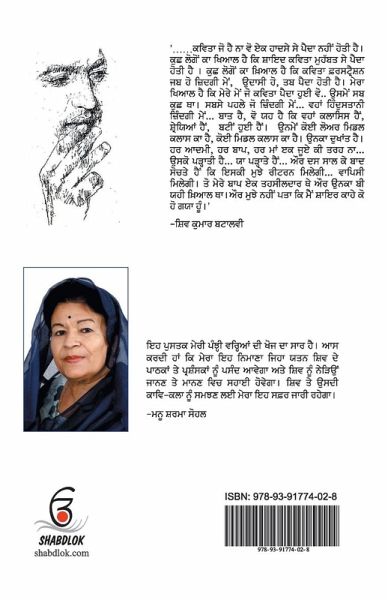 '......ਕਵਿਤਾ ਜੋ ਹੈ ਨਾ ਵੋ ਏਕ ਹਾਦਸੇ ਸੇ ਪੈਦਾ ਨਹੀਂ ਹੋਤੀ ਹੈ।
ਕੁਛ ਲੋਗੋਂ ਕਾ ਖਿਆਲ ਹੈ ਕਿ ਸ਼ਾਇਦ ਕਵਿਤਾ ਮੁਹੱਬਤ ਸੇ ਪੈਦਾ
ਹੋਤੀ ਹੈ । ਕੁਛ ਲੋਗੋਂ ਕਾ ਖ਼ਿਆਲ ਹੈ ਕਿ ਕਵਿਤਾ ਫ਼ਰਸਟ੍ਰੇਸ਼ਨ
ਜਬ ਹੋ ਜ਼ਿਦਗੀ ਮੇਂ, ਉਦਾਸੀ ਹੋ, ਤਬ ਪੈਦਾ ਹੋਤੀ ਹੈ। ਮੇਰਾ
ਖਿਆਲ ਹੈ ਕਿ ਮੇਰੇ ਮੇਂ ਜੋ ਕਵਿਤਾ ਪੈਦਾ ਹੂਈ ਵੋ.. ਉਸਮੇਂ ਸਬ
ਕੁਛ ਥਾ। ਸਬਸੇ ਪਹਲੇ ਜੋ ਜ਼ਿੰਦਗੀ ਮੇਂ... ਵਹਾਂ ਹਿੰਦੁਸਤਾਨੀ
ਜ਼ਿੰਦਗੀ ਮੇਂ... ਬਾਤ ਹੈ, ਵੋ ਯਹ ਹੈ ਕਿ ਵਹਾਂ ਕਲਾਸਿਜ ਹੈਂ,
ਸ਼੍ਰੇਣਿਆਂ ਹੈਂ, ਬਟੀਂ ਹੁਈ ਹੈਂ। ਉਨਮੇਂ ਕੋਈ ਲੋਅਰ ਮਿਡਲ
ਕਲਾਸ ਕਾ ਹੈ, ਕੋਈ ਮਿਡਲ ਕਲਾਸ ਕਾ ਹੈ। ਉਨਕਾ ਦੁਖਾਂਤ ਹੈ।
ਹਰ ਆਦਮੀ, ਹਰ ਬਾਪ, ਹਰ ਮਾਂ ਏਕ ਜੂਏ ਕੀ ਤਰਹ ਨਾ...
ਉਸਕੋ ਪੜ੍ਹਾਤੀ ਹੈ... ਯਾ ਪੜ੍ਹਾਤੇ ਹੈਂ... ਔਰ ਦਸ ਸਾਲ ਕੇ ਬਾਦ
ਸੋਚਤੇ ਹੈਂ ਕਿ ਇਸਕੀ ਮੁਝੇ ਰੀਟਰਨ ਮਿਲੇਗੀ... ਵਾਪਿਸੀ
ਮਿਲੇਗੀ। ਤੋ ਮੇਰੇ ਬਾਪ ਏਕ ਤਹਸੀਲਦਾਰ ਥੇ ਔਰ ਉਨਕਾ ਬੀ
ਯਹੀ ਖ਼ਿਆਲ ਥਾ। ਔਰ ਮੁਝੇ ਨਹੀਂ ਪਤਾ ਕਿ ਮੈਂ ਸ਼ਾਇਰ ਕਾਹੇ ਕੋ
ਹੋ ਗਯਾ ਹੂੰ।'
-ਸ਼ਿਵ ਕੁਮਾਰ ਬਟਾਲਵੀ
ਇਹ ਪੁਸਤਕ ਮੇਰੀ ਪੰਝੀ ਵਰ੍ਹਿਆਂ ਦੀ ਖੋਜ ਦਾ ਸਾਰ ਹੈ। ਆਸ
ਕਰਦੀ ਹਾਂ ਕਿ ਮੇਰਾ ਇਹ ਨਿਮਾਣਾ ਜਿਹਾ ਯਤਨ ਸ਼ਿਵ ਦੇ
ਪਾਠਕਾਂ ਤੇ ਪ੍ਰਸ਼ੰਸਕਾਂ ਨੂੰ ਪਸੰਦ ਆਵੇਗਾ ਅਤੇ ਸ਼ਿਵ ਨੂੰ ਨੇੜਿਉਂ
ਜਾਨਣ ਤੇ ਮਾਨਣ ਵਿਚ ਸਹਾਈ ਹੋਵੇਗਾ। ਸ਼ਿਵ ਤੇ ਉਸਦੀ
ਕਾਵਿ-ਕਲਾ ਨੂੰ ਸਮਝਣ ਲਈ ਮੇਰਾ ਇਹ ਸਫ਼ਰ ਜਾਰੀ ਰਹੇਗਾ।
-ਮਨੂ ਸ਼ਰਮਾ ਸੋਹਲ
ੳ
SHABDLOK
shabdlok.com
ISBN: 978-93-91774-02-8
978-93-91774-02-8